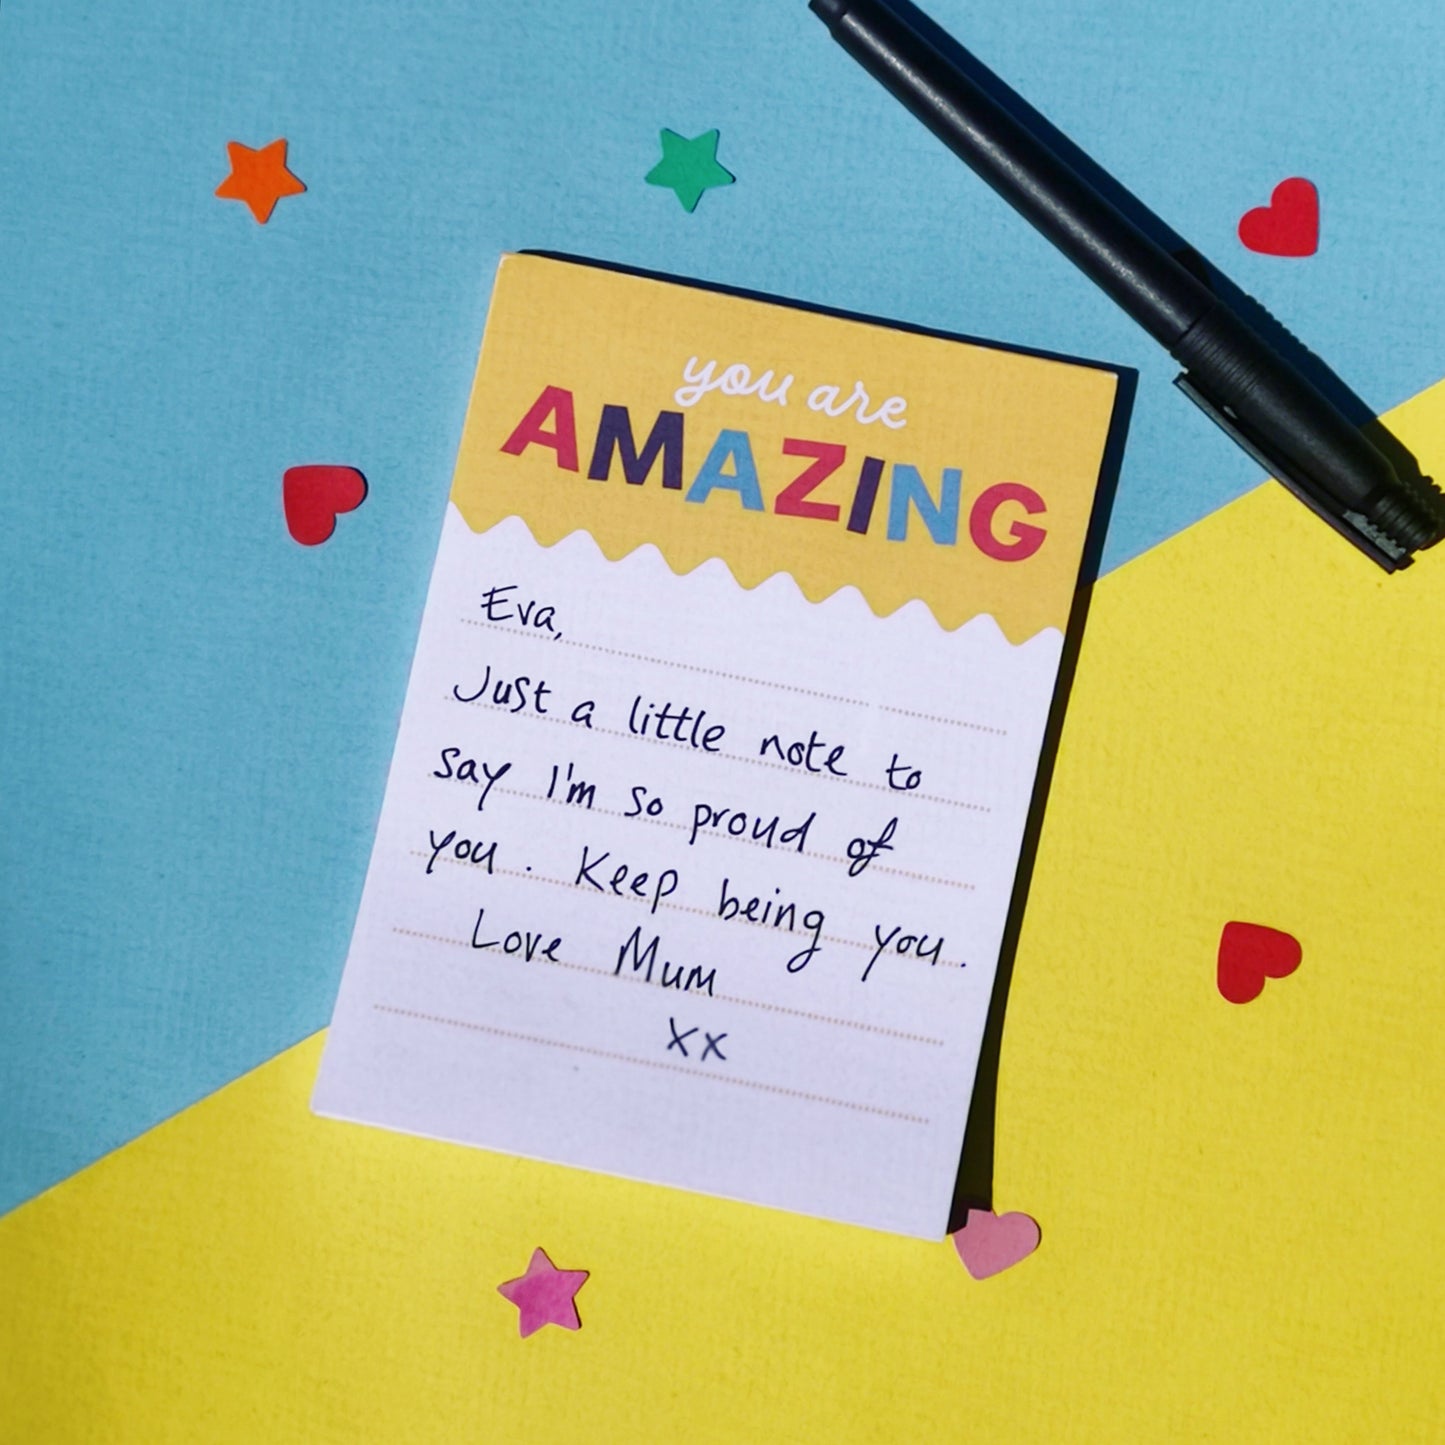 you are
AMAZING
Eva,
Just a little note to
say I'm so proud of
you. Keep being you.
Love Mum
xx